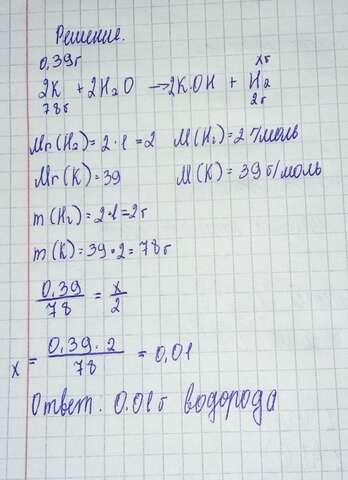 Решение.
0,39г хг
2K + 2H₂O → 2KOH + H₂
78г 2г
Mr(H₂) = 2·1 = 2 M(H₂) = 2 г/моль
Mr(K) = 39 M(K) = 39 г/моль
m(H₂) = 2·1 = 2г
m(K) = 39·2 = 78г
0,39/78 = x/2
x = 0,39·2/78 = 0,01
Ответ: 0.01г водорода